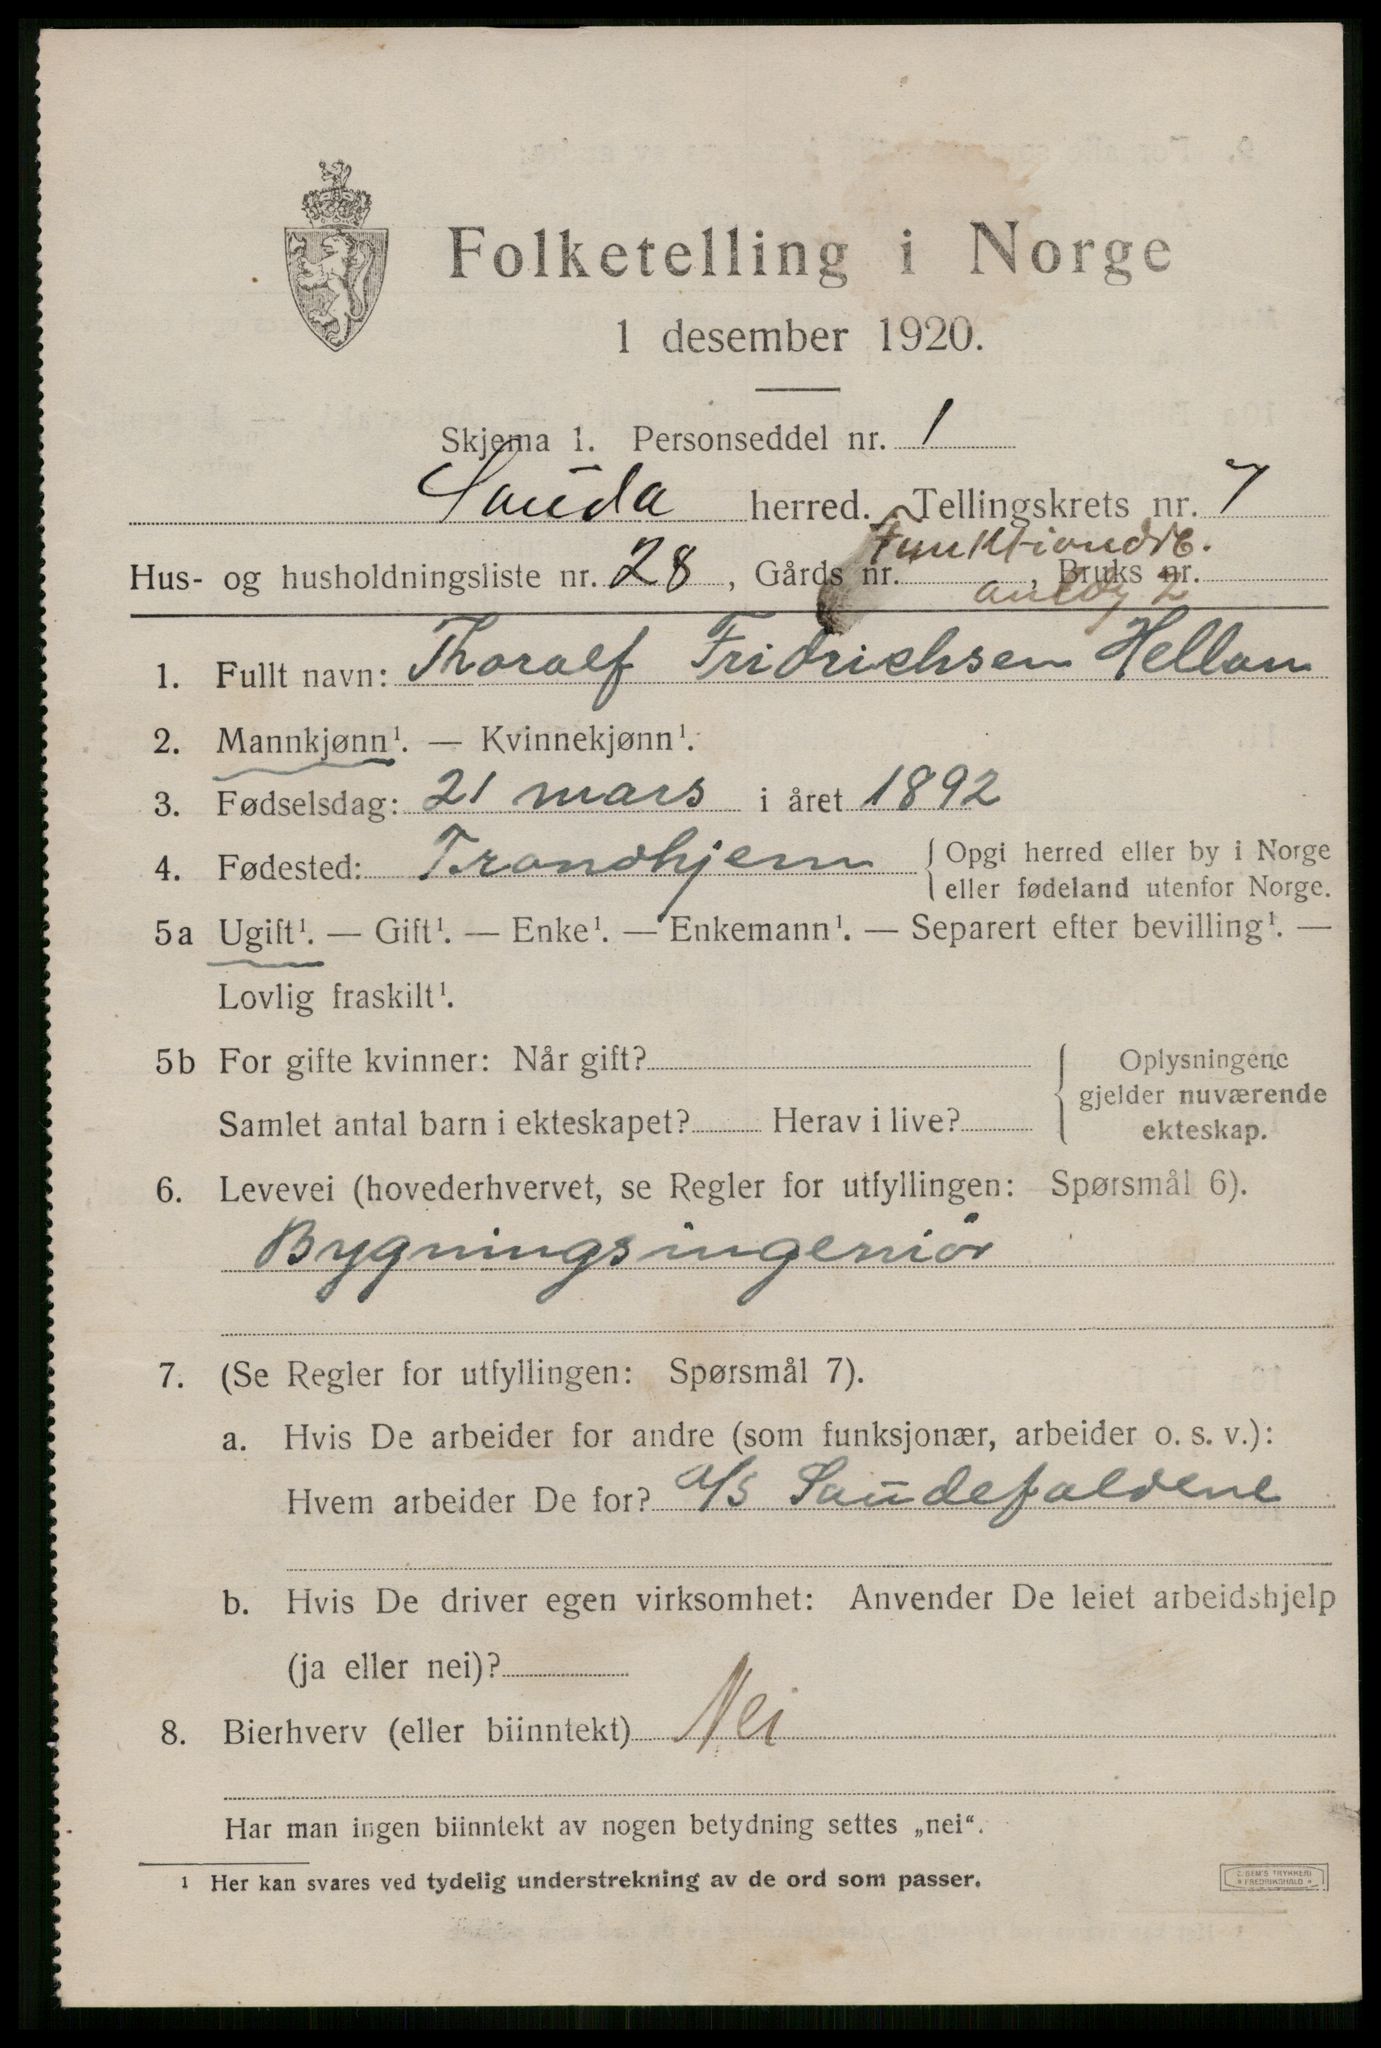 Folketelling i Norge
1 desember 1920.
Skjema 1. Personseddel nr. 1
Sauda herred. Tellingskrets nr. 7
Funktionærb.
Hus- og husholdningsliste nr. 28, Gårds nr. , Bruks nr.
2
1. Fullt navn: Thoralf Fridrichsen Hellan
2. Mannkjønn¹. — Kvinnekjønn¹.
3. Fødselsdag: 21 mars i året 1892
4. Fødested: Trondhjem { Opgi herred eller by i Norge
eller fødeland utenfor Norge.
5a Ugift¹. — Gift¹. — Enke¹. — Enkemann¹. — Separert efter bevilling¹. —
Lovlig fraskilt¹.
5b For gifte kvinner: Når gift? Oplysningene
gjelder nuværende
Samlet antal barn i ekteskapet? Herav i live? ekteskap.
6. Levevei (hovederhvervet, se Regler for utfyllingen: Spørsmål 6).
Bygningsingeniör
7. (Se Regler for utfyllingen: Spørsmål 7).
a. Hvis De arbeider for andre (som funksjonær, arbeider o. s. v.):
Hvem arbeider De for? A/S Saudefaldene
b. Hvis De driver egen virksomhet: Anvender De leiet arbeidshjelp
(ja eller nei)?
8. Bierhverv (eller biinntekt) Nei
Har man ingen biinntekt av nogen betydning settes „nei“.
¹ Her kan svares ved tydelig understrekning av de ord som passer.
E. SEM'S TRYKKERI
* FREDRIKSHALD *